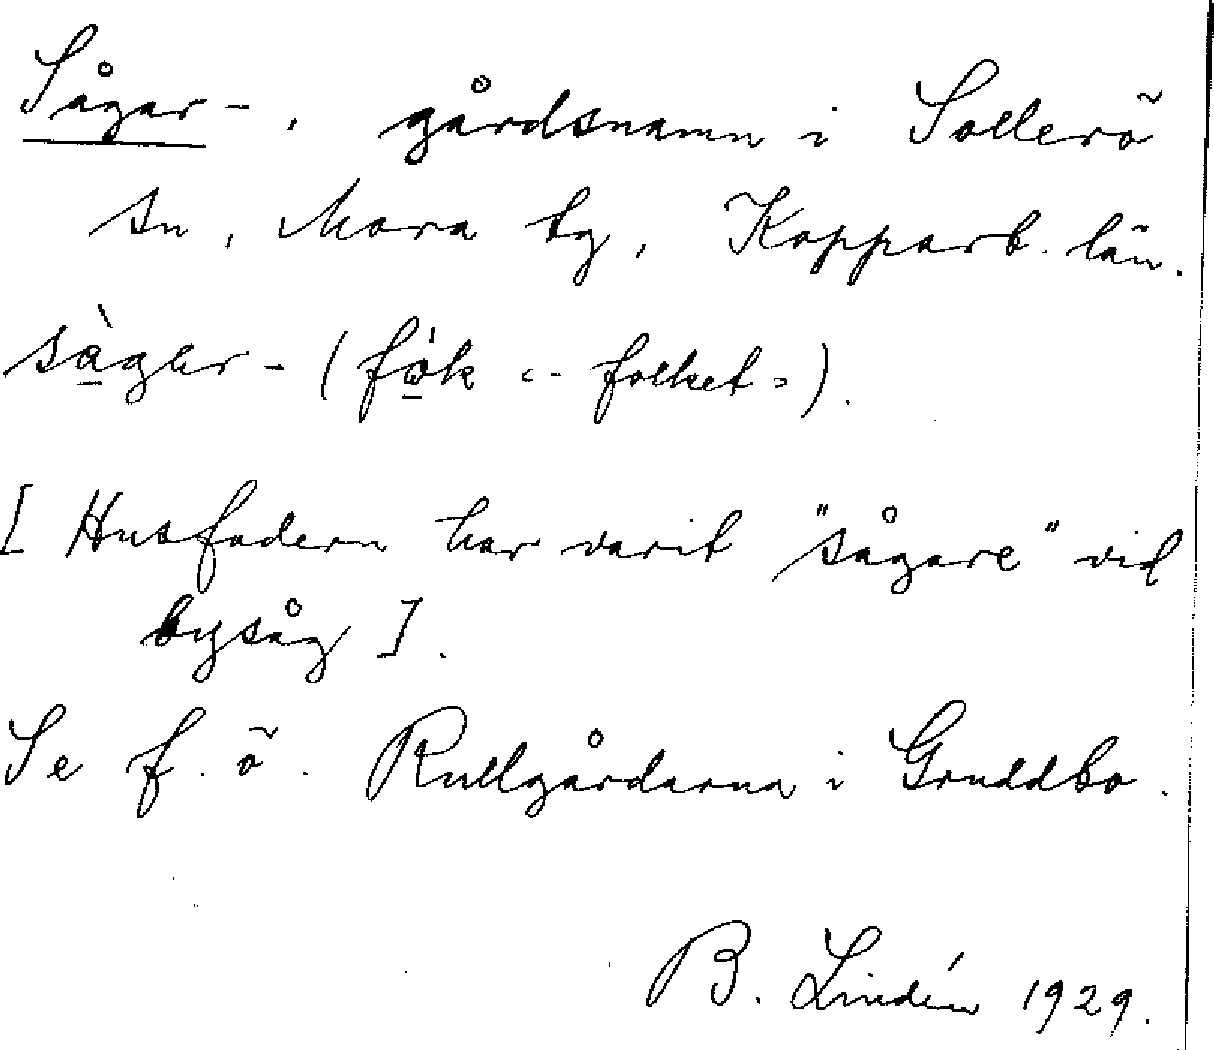 Sågar-, gårdsnamn i Sollerö
sn, Mora tg, Kopparb. län.
sà̱gær- (fö̱̀k "-folket").
[ Husfadern har varit "sågare" vid
bysåg ].
Se f. ö. Rullgårdarna i Gruddbo.
B. Lindén 1929.